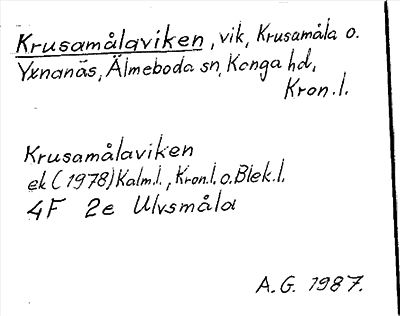 Krusamålaviken, vik, Krusamåla o.
Yxnanäs, Älmeboda sn, Konga hd,
Kron.l.
Krusamålaviken
ek (1978) Kalm.l., Kron.l. o. Blek.l.
4F 2e Ulvsmåla
A.G. 1987.